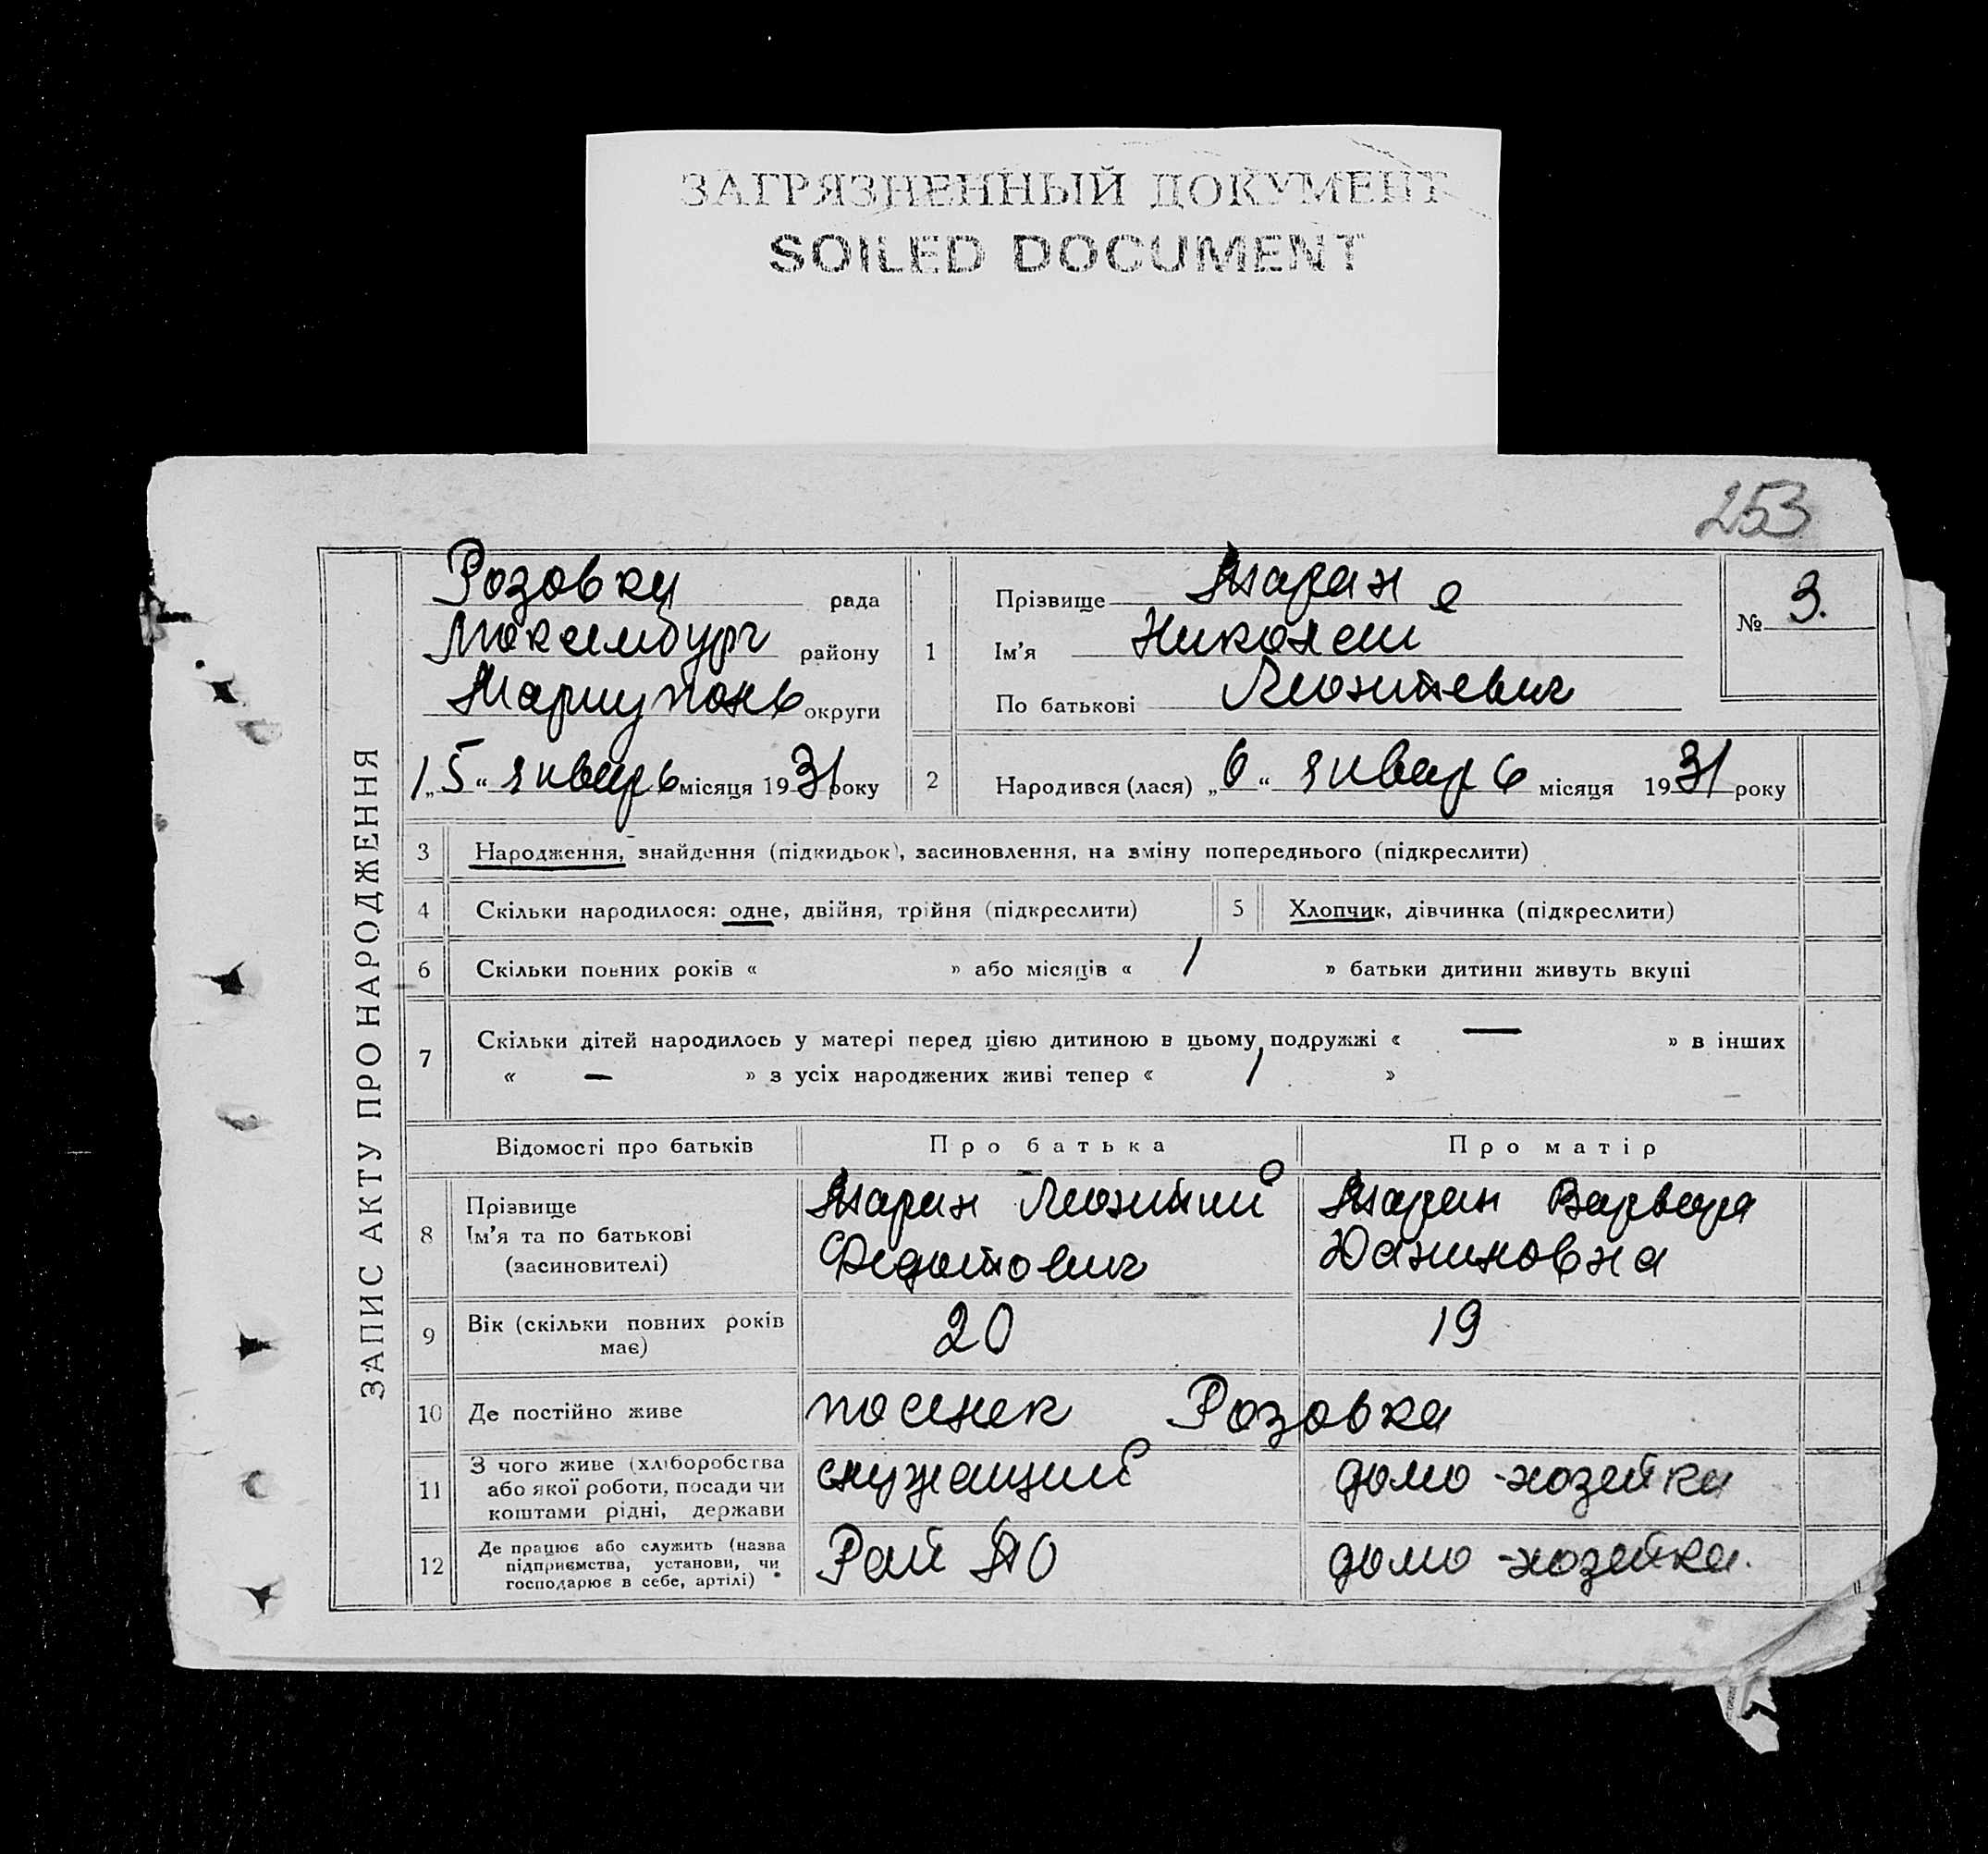 ЗАГРЯЗНЕННЫЙ ДОКУМЕНТ
SOILED DOCUMENT
253
ЗАПИС АКТУ ПРО НАРОДЖЕННЯ
Розовка рада
район
Мариуполь округи
15 " январь місяця 1931 року
1 Прізвище Таран
Ім'я Николай
По батькові Леонтевич
№ 3.
2 Народився (лася) „ 6 " январь місяця 1931 року
3 Народження, знайдення (підкидьок), засиновлення, на зміну попереднього (підкреслити)
4 Скільки народилося: одне, двійня, трійня (підкреслити) 5 Хлопчик, дівчинка (підкреслити)
6 Скільки повних років « » або місяців « 1 » батьки дитини живуть вкупі
7 Скільки дітей народилось у матері перед цією дитиною в цьому подружжі « — » в інших
« — » з усіх народжених живі тепер « 1 »
Відомості про батьків Про батька Про матір
8 Прізвище Ім'я та по батькові (засиновителі) Таран Леонтий Федотович Таран Варвара Даниловна
9 Вік (скільки повних років має) 20 19
10 Де постійно живе поселек Розовка
11 З чого живе (хліборобства або якої роботи, посади чи коштами рідні, держави служащий домо-хозейка
12 Де працює або служить (назва підприємства, установи, чи господарює в себе, артілі) Рай ПО домо-хозейка.